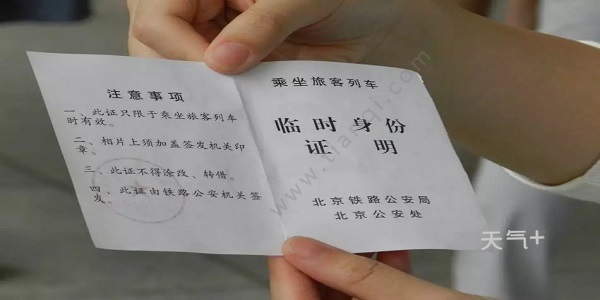 注意事项
一、此证只限于乘坐旅客列车
时有效。
二、相片上须加盖签发机关印
章。
三、此证不得涂改、转借。
四、此证由铁路公安机关签
发。
乘坐旅客列车
临时身份
证明
北京铁路公安局
北京公安处
天气+